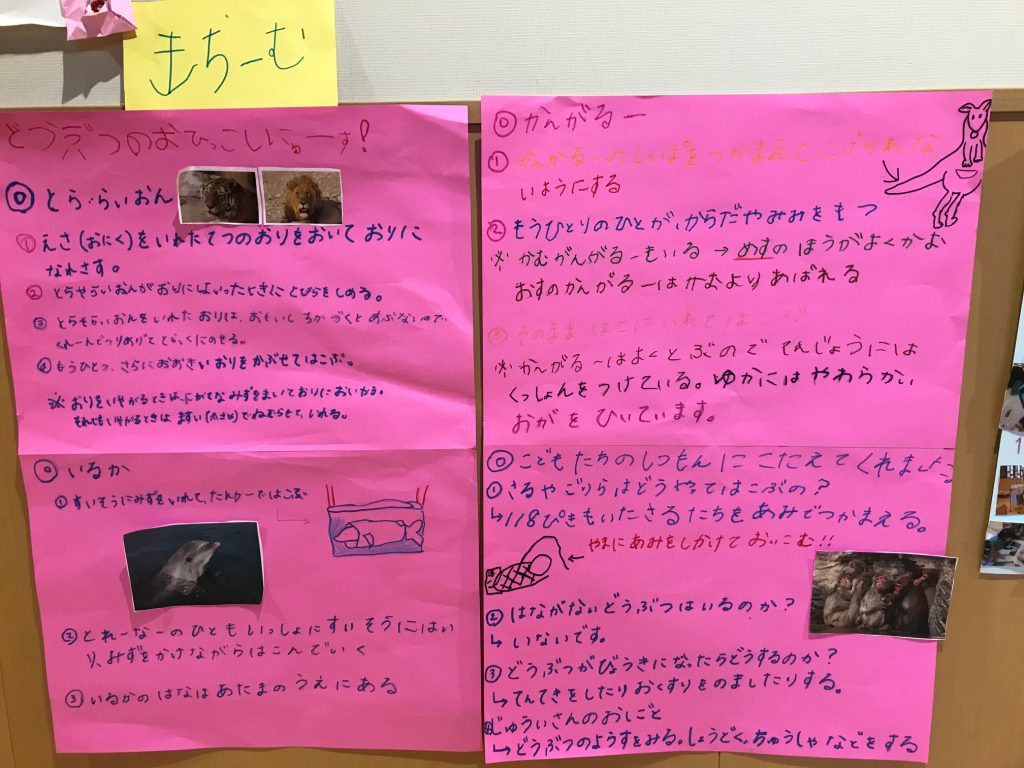 まぢーむ
どうぶつのおひっこしにゅーす!
◎とら・らいおん
①えさ(おにく)をいれたてつのおりをおいておりに
なれさす。
②とらやらいおんがおりにはいったときにとびらをしめる。
③とらやらいおんをいれたおりは、おもいしちかづくとあぶないので、
くれーんでつりあげてとらっくにのせる。
④もうひとつ、さらにおおきいおりをかぶせてはこぶ。
※おりをいやがるときは、にがてなみずをまいておりにおいかける。
それでもいやがるときはますい(ちゅうしゃ)でねむらせて、いれる。
◎いるか
①すいそうにみずをいれて、たんかーではこぶ
②とれーなーのひともいっしょにすいそうにはい
り、みずをかけながらはこんでいく
③いるかのはなはあたまのうえにある
◎かんがるー
①かんがるーのしっぽをつかまえてっこばられな
いようにする
②もうひとりのひとが、からだやみみをもつ
※かむかんがるーもいる→めすのほうがよくかむ
おすのかんがるーはかむよりあばれる
③そのままはこにいれてはこぶ
※かんがるーはよくとぶのでてんじょうには
くっしょんをつけている。ゆかにはやわらかい
おがをひいています。
◎こどもたちのしつもんにこたえてくれました
①さるやごりらはどうやってはこぶの?
↳118ぴきもいたさるたちをあみでつかまえる。
←やまにあみをしかけておいこむ!!
②はながないどうぶつはいるのか?
↳いないです。
③どうぶつがびょうきになったらどうするのか?
↳てんてきをしたりおくすりをのましたりする。
④じゅういさんのおしごと
↳どうぶつのようすをみる。しょうどく、ちゅうしゃなどをする